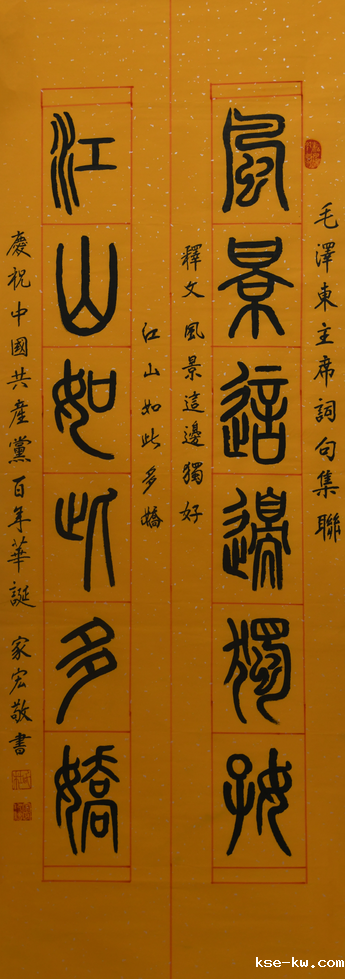 毛澤東主席詞句集聯
風景這邊獨好
釋文 風景這邊獨好
江山如此多嬌
江山如此多嬌
慶祝中國共產黨百年華誕 家宏敬書
kse-kw.com